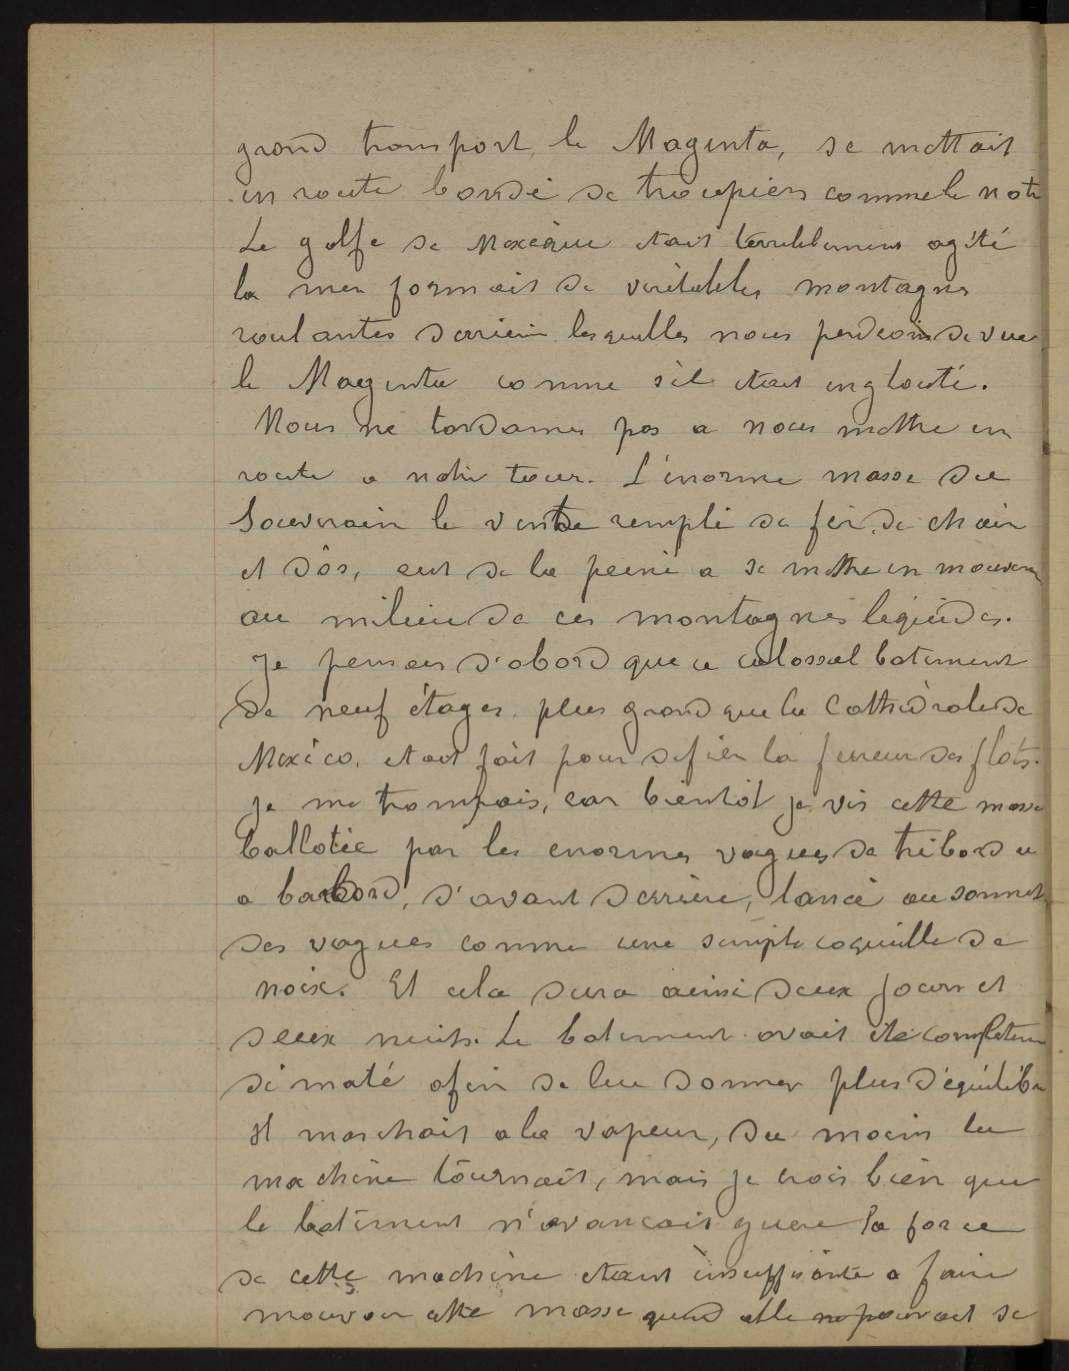 grand transport, le Magenta, se mettait
en route bondé de troupiers comme le notr
Le golfe de Mexique etait terriblement agité
la mer formait de veritables montagnes
roulantes derriere lesquelles nous perdions de vue
le Magenta comme s'il etait englouti.
Nous ne tardames pas a nous mettre en
route a notre tour. L'énorme masse du
Souverain le ventre rempli de fer, de chair
et d'os, eut de la peine a se mettre en mouvem
au milieu de ces montagnes liquides.
Je pensais d'abord que ce colossal batiment
de neuf étages, plus grand que la Cathédrale de
Mexico, etait fait pour defier la fureur des flots.
Je me trompais, car bientôt je vis cette masse
ballotée par les enormes vagues de tribord
a babord, d'avant derrière, lancé au sommet
des vagues comme une simple coquille de
noix. Et cela dura ainsi deux jours et
deux nuits. Le batiment avait été completem
dématé afin de lui donner plus d'équilibre
Il marchait a la vapeur, du moins la
machine tournait, mais je crois bien que
le batiment n'avancait guere la force
de cette machine etant insuffisante a faire
mouvoir cette masse quand elle ne pouvait se